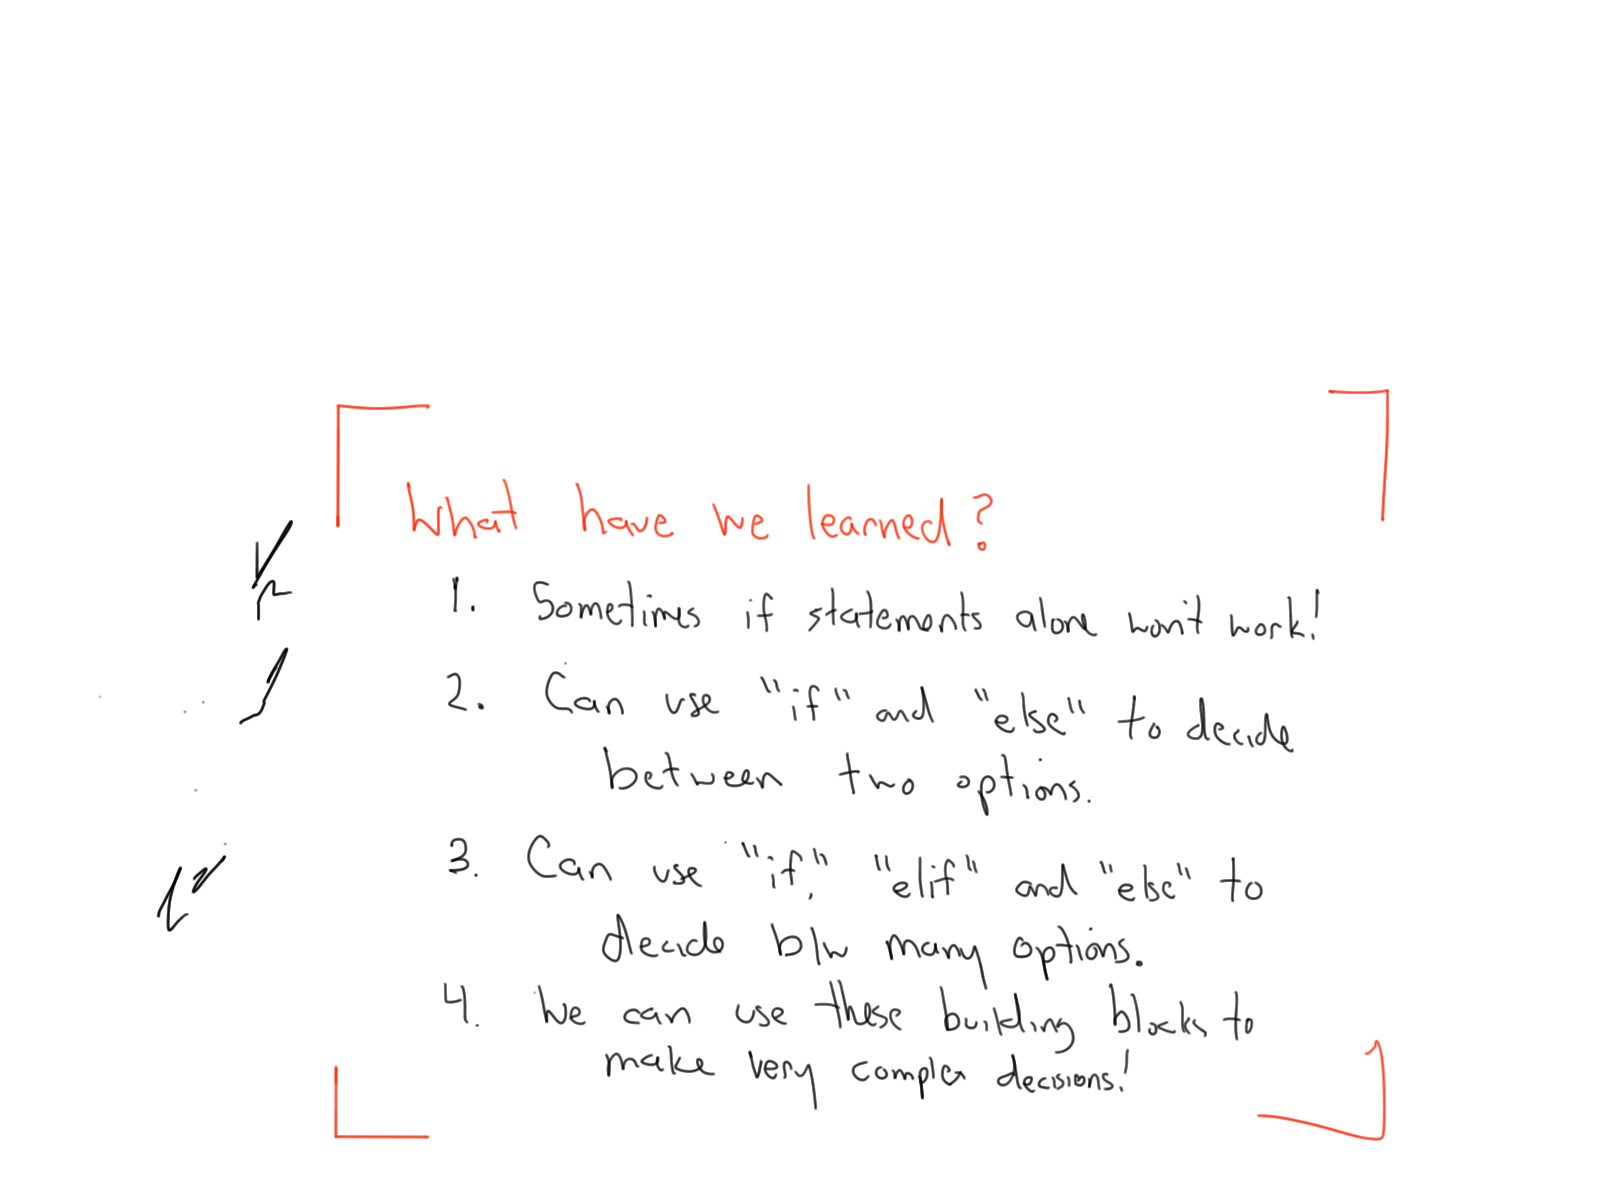 What have we learned?
1. Sometimes if statements alone won't work!
2. Can use "if" and "else" to decide
between two options.
3. Can use "if," "elif" and "else" to
decide b/w many options.
4. We can use these building blocks to
make very complex decisions!